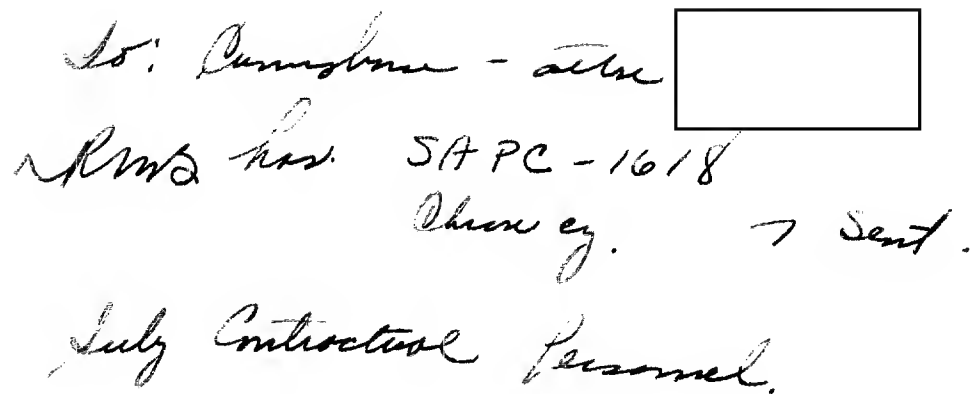 To: Cunningham - attn
RMB has. SAPC-1618
Chron cy. → Sent.
July Contractual Personnel.